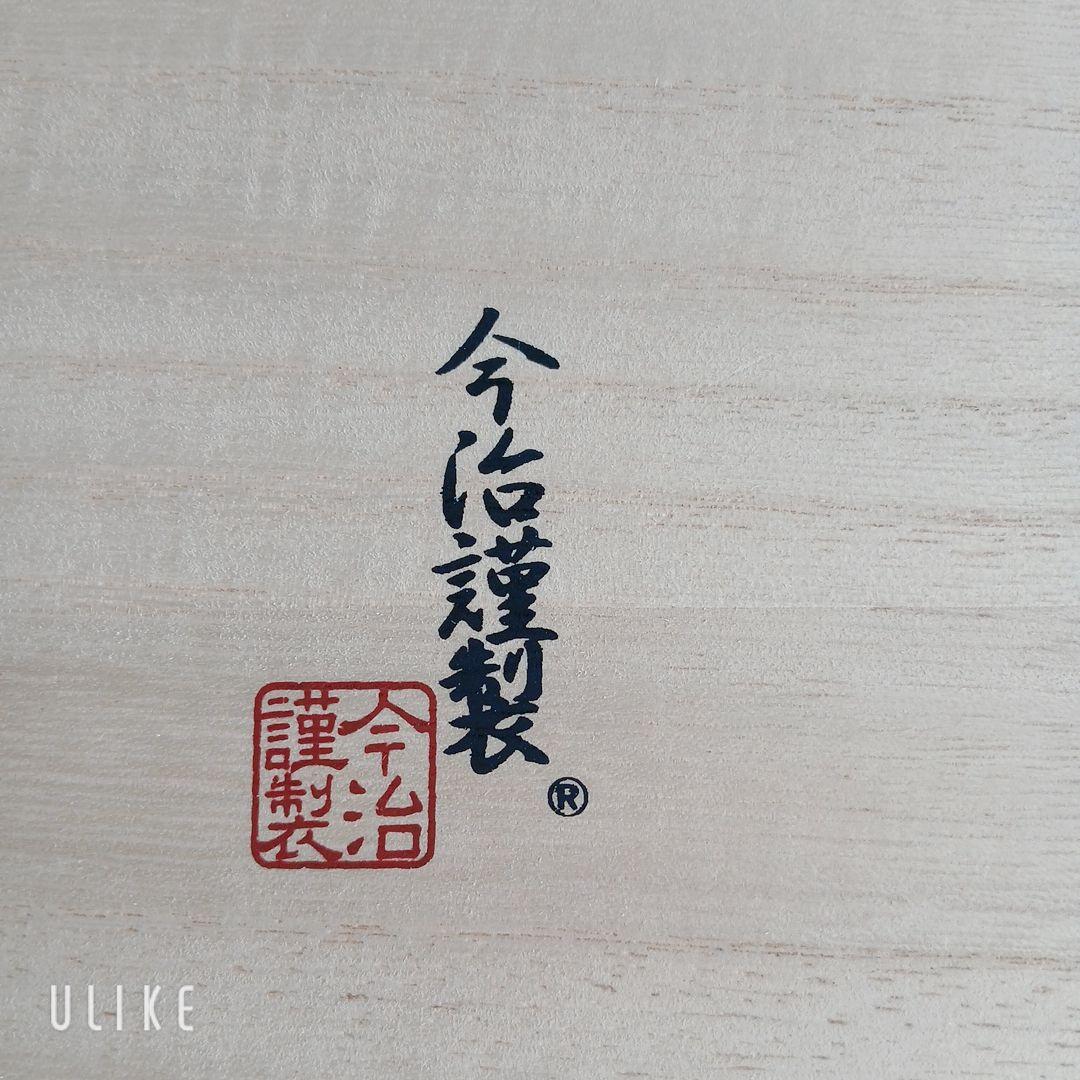 今治謹製
®
今治
謹製
ULIKE